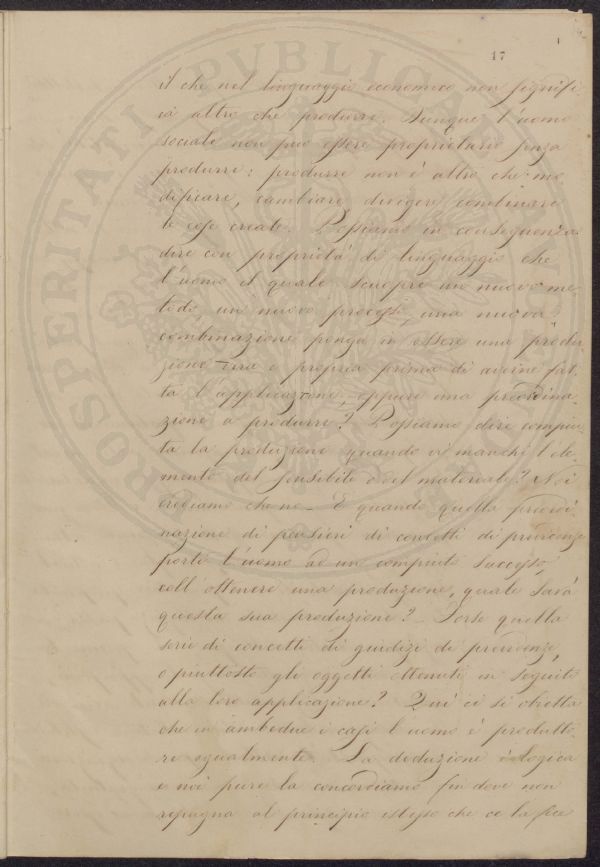 17
il che nel linguaggio economico non signifi-
ca altro che produrre. Dunque l'uomo
sociale non può essere proprietario senza
produrre: produrre non è altro che mo-
dificare, cambiare dirigere combinare
le cose create. Possiamo in conseguenza
dire con proprietà di linguaggio che
l'uomo il quale scuopre un nuovo me-
todo, un nuovo processo, una nuova
combinazione ponga in essere una produ-
zione vera e propria prima di averne fat-
ta l'applicazione, oppure una preordina-
zione a produrre? Possiamo dire compiu-
ta la produzione quando vi manchi l'ele-
mento del sensibile o del materiale? Noi
crediamo che no _ E quando quella preordi-
nazione di pensieri di concetti di previdenze
porti l'uomo ad un compiuto successo,
coll'ottenere una produzione, quale sarà
questa sua produzione? _ Forse quella
serie di concetti di giudizi di previdenze,
o piuttosto gli oggetti ottenuti in seguito
alla loro applicazione? Qui ci si obietta
che in ambedue i casi l'uomo è produtto-
re egualmente. La deduzione è logica
e noi pure la concordiamo fin dove non
repugna al principio istesso che ce la fece
PROSPERITATI PUBLICAE